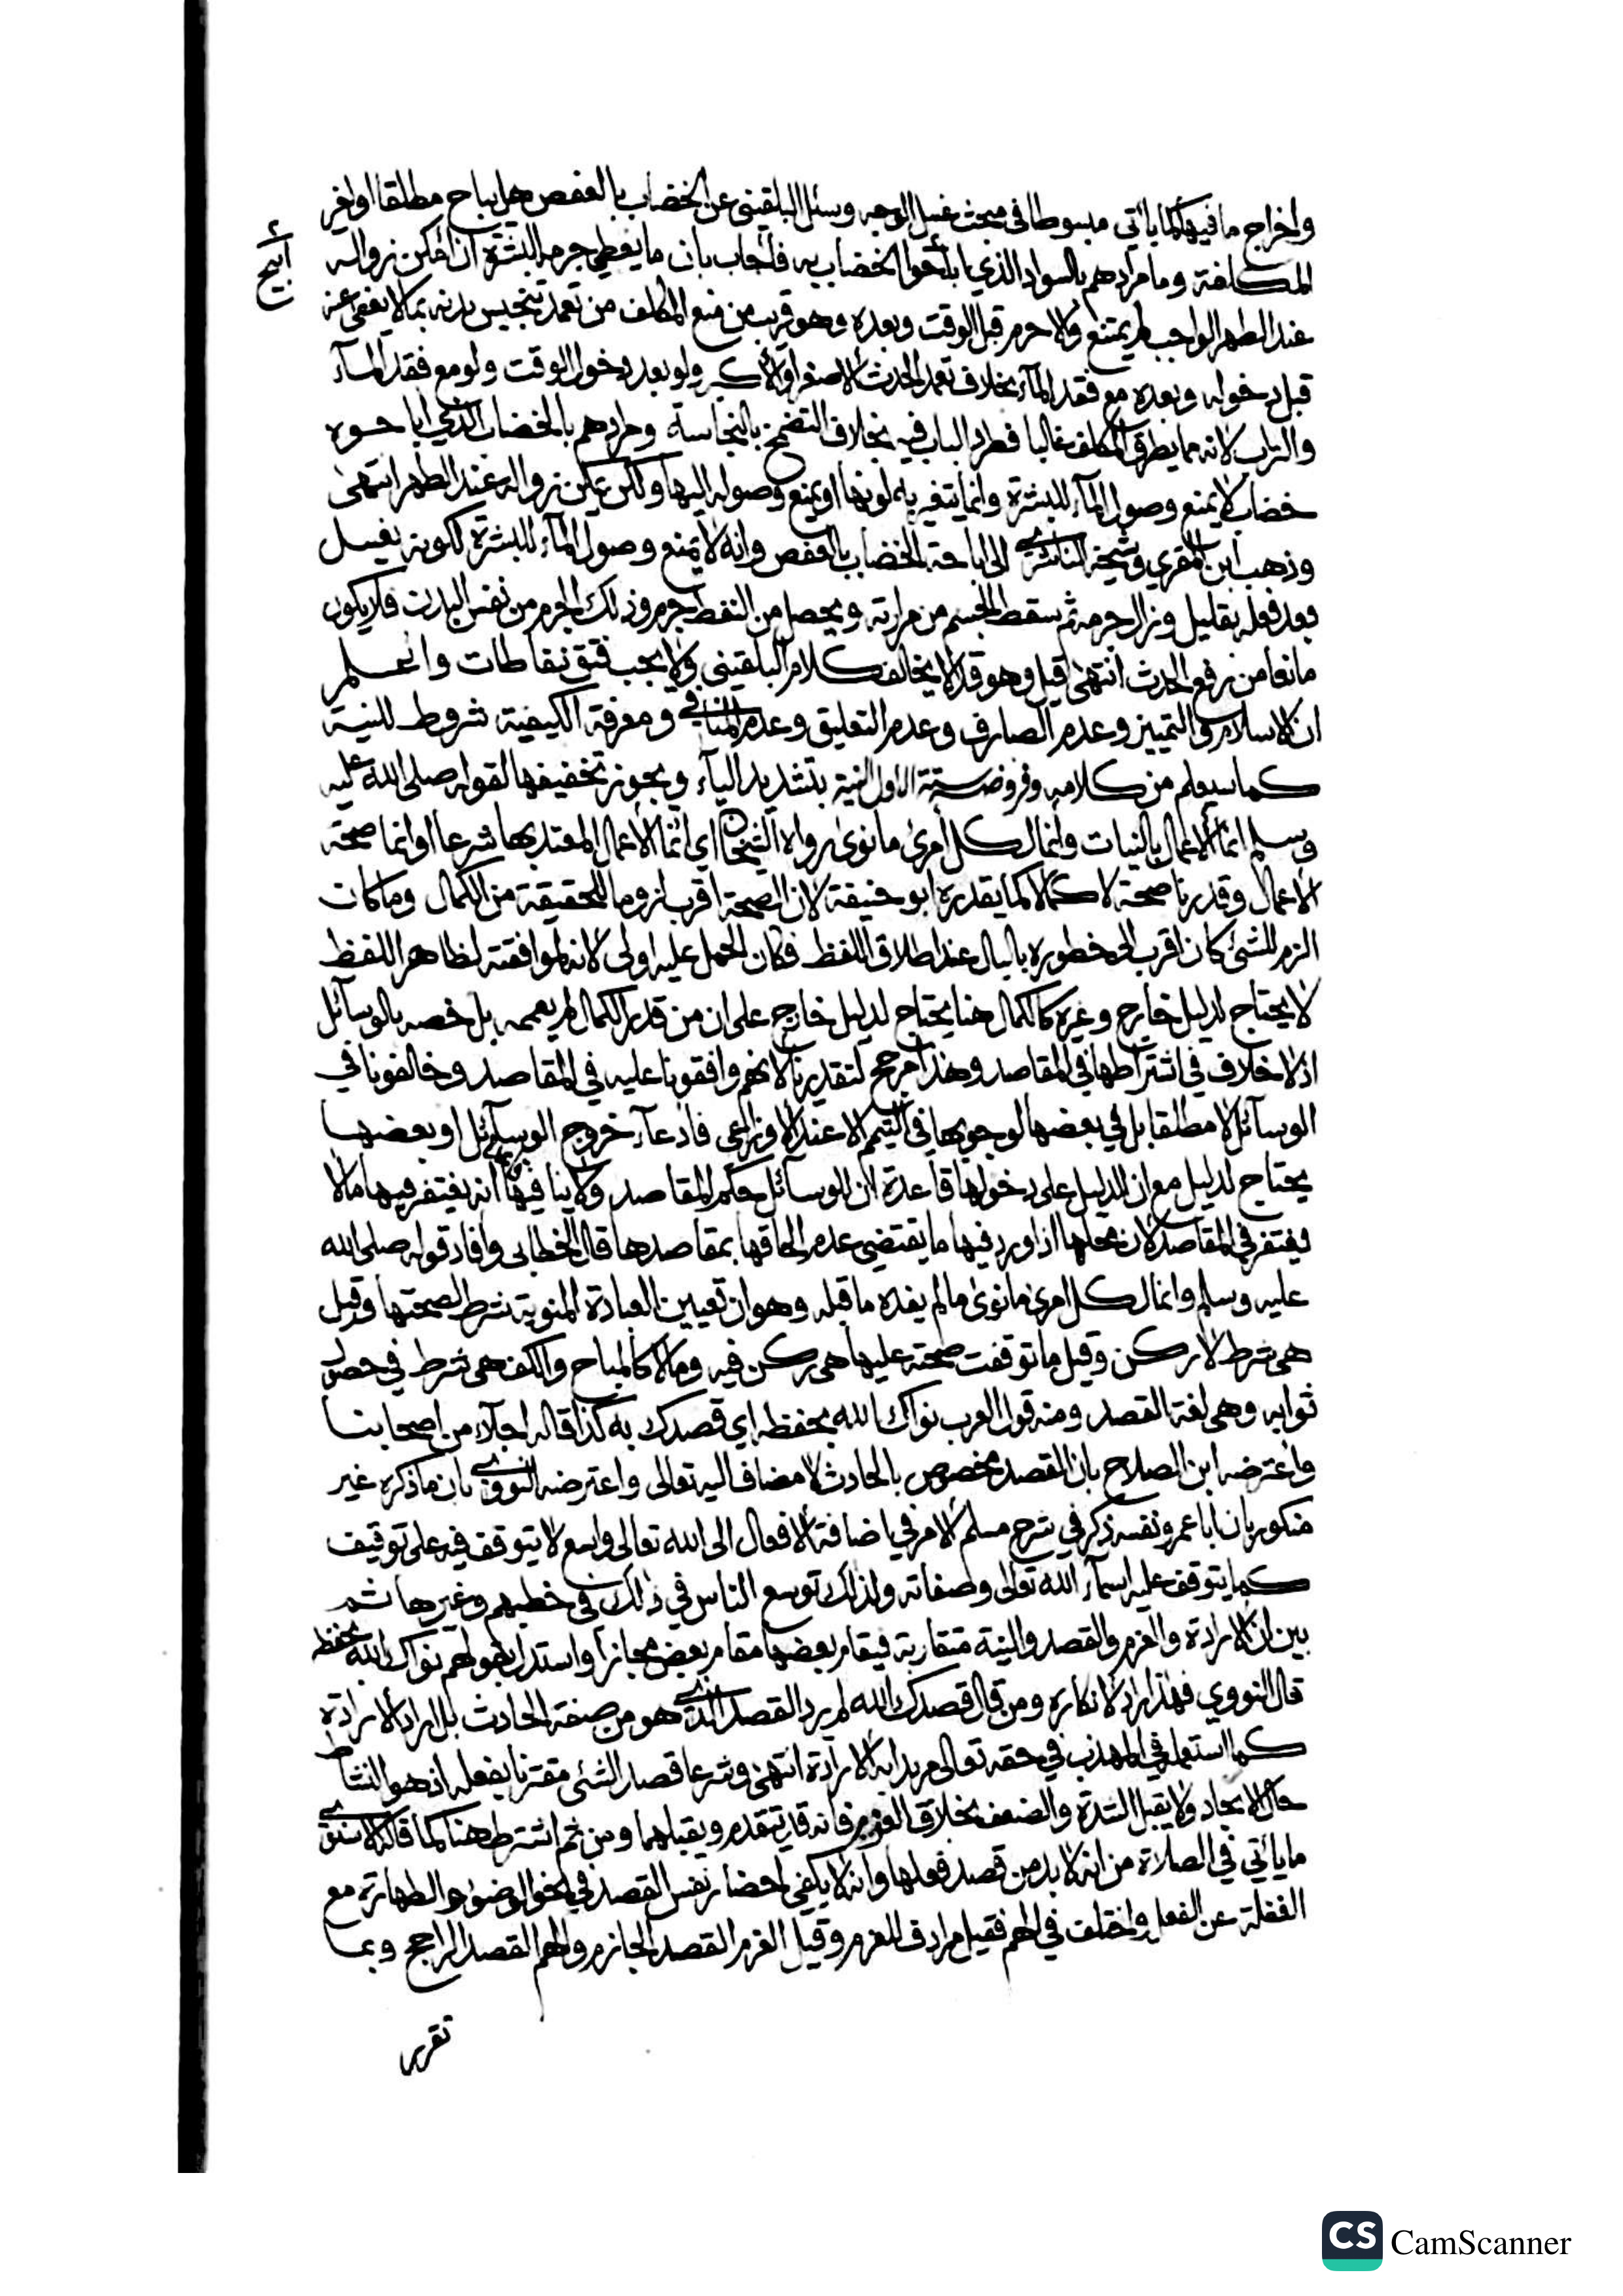 واخراج ما فيها كما يأتي مبسوطا في مبحث غسل الوجه وسئل البلقيني عن الخضاب بالعفص هل يباح مطلقا اولغير
أبيح
المكلفة وما مرادهم بالسواد الذي اباحوا الخضاب به فأجاب بان ما يغطي جرمه البشرة ان امكن زواله
عند الطهر الواجب لم يمتنع والا حرم قبل الوقت وبعده وهو قريب من منع المكلف من تعمد تنجيس بدنه بما لا يعفى عنه
قبل دخوله وبعده مع فقد المآء بخلاف تعمد الحدث الاصغر او الأكبر ولو بعد دخول الوقت ولو مع فقد المآء
والتراب لانه مما يطرق المكلف غالبا فطرد الباب فيه بخلاف التضمخ بالنجاسة ومرادهم بالخضاب الذي اباحوه
خضاب لا يمنع وصول المآء للبشرة وانما يتغير به لونها او يمنع وصوله اليها ولكن يمكن زواله عند الطهر انتهى
وذهب ابن المقري وشيخه الناشري الى اباحة الخضاب بالعفص وانه لا يمنع وصول المآء للبشرة لكونه يغسل
بعد فعله بقليل ويزال جرمه ثم سقط الجسم من حرارته ويحصل من النفط جرم وذلك الجرم من نفس البدن فلا يكون
مانعا من رفع الحدث انتهى قيل وهو قد لا يخالف كلام البلقيني ولا يجب فتق نفاطات واعلم
ان الاسلام والتمييز وعدم الصارف وعدم التعليق وعدم المنافي ومعرفة الكيفية شروط للنية
كما سيعلم من كلامه وفروضه ستة الاول النية بتشديد اليآء ويجوز تخفيفها لقوله صلى الله عليه
وسلم انما الاعمال بالنيات وانما لكل امرئ ما نوى رواه الشيخان اي انما الأعمال المعتد بها شرعا او انما صحة
الاعمال وقدرنا صحة لا كمالا كما يقدره ابو حنيفة لان الصحة اقرب لزوما للحقيقة من الكمال وما كان
الزم للشئ كان اقرب الى خطوره بالبال عند اطلاق اللفظ فكان الحمل عليه اولى لانه لموافقته لظاهر اللفظ
لا يحتاج لدليل خارج وغيره كالكمال هنا يحتاج لدليل خارج على ان من قدر الكمال لم يعممه بل خصه بالوسآئل
اذ لا خلاف في اشتراطها في المقاصد وهذا مرجح لتقديرنا لانهم وافقونا عليه في المقاصد وخالفونا في
الوسآئل لا مطلقا بل في بعضها لوجوبها في التيمم الا عند الاوزاعي فادعآء خروج الوسآئل او بعضها
يحتاج لدليل مع ان الدليل على دخولها قاعدة ان للوسآئل حكم المقاصد ولا ينافيها انه يغتفر فيها مالا
يغتفر في المقاصد لان محلها اذا ورد فيها ما يقتضي عدم الحاقها بمقاصدها قال الخطابي وافاد قوله صلى الله
عليه وسلم وانما لكل امرئ ما نوى ما لم يفده ما قبله وهو ان تعيين العبادة المنوية شرط لصحتها وقيل
هي شرط لا ركن وقيل ما توقفت صحته عليها هي ركن فيه وما لا كالمباح والكف هي شرط في حصول
ثوابه وهي لغة القصد ومنه قول العرب نواك الله بحفظه اي قصدك به كذا قاله اجلآء من اصحابنا
واعترضه ابن الصلاح بان القصد مخصوص بالحادث لا مضاف اليه تعالى واعترضه النووي بان ما ذكره غير
منكور بان ابا عمرو نفسه ذكر في شرح مسلم الامر في اضافة الافعال الى الله تعالى واسع لا يتوقف فيه على توقيف
كما يتوقف عليه اسمآء الله تعالى وصفاته ولذلك توسع الناس في ذلك في خطبهم وغيرها ثم
بين ان الارادة والعزم والقصد والنية متقاربة فيقام بعضها مقام بعض مجازا واستدل بقولهم نواك الله بحفظه
قال النووي فهذا راد لانكاره ومن قال قصدك الله لم يرد القصد الذي هو من صفة الحادث بل اراد الارادة
كما استعمل في المهذب في حقه تعالى مريدا به الارادة انتهى وشرعا قصد الشئ مقترنا بفعله اذ هو النشاط
حال الايجاد ولا يقبل الشدة والضعف بخلاف العزم فانه قد يتقدم ويقبلهما ومن ثم اشترط هنا كما قاله الاسنوي
ما يأتي في الصلاة من انه لا بد من قصد فعلها وانه لا يكفي احضار نفس القصد في نحو الوضوء والطهارة مع
الغفلة عن الفعل واختلف في الهم فقيل مرادف للعزم وقيل العزم القصد الجازم والهم القصد الراجح وبما
تقرر
CS CamScanner